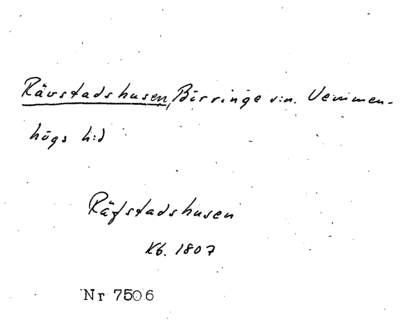 Rävstadshusen, Börringe s:n. Vemmen-
högs h:d
Räfstadshusen
Kb. 1807
Nr 7506